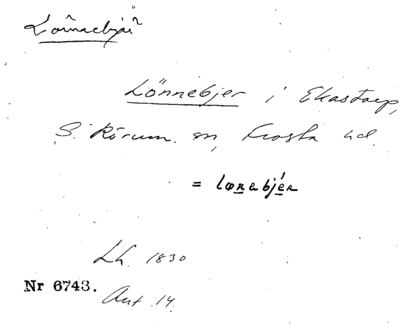 Lönnebjär
Lönnebjer i Ekastorp,
S. Rörum sn, Frosta hd.
= lonebjér
Lh. 1830
Nr 6743. Ant. 14.